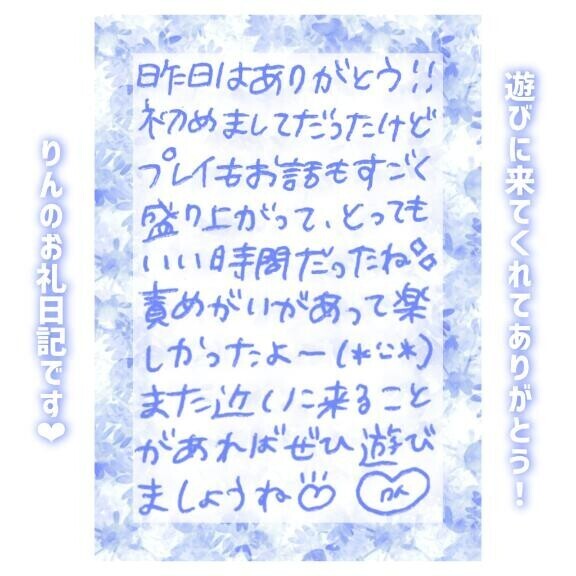 遊びに来てくれてありがとう!
昨日はありがとう!!
初めましてだったけど
プレイもお話もすごく
盛り上がって、とっても
いい時間だったね
責めがいがあって楽
しかったよ〜(*ᵕᵕ*)
また近くに来ること
があればぜひ遊び
ましょうね
りん
りんのお礼日記です❤